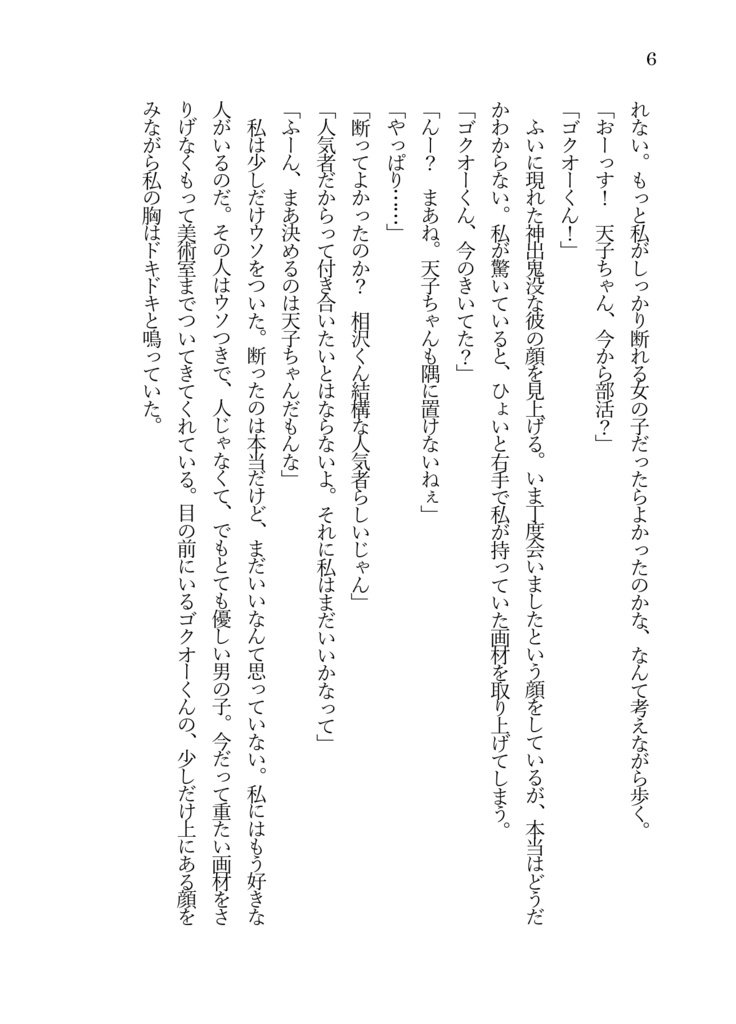 6
れない。もっと私がしっかり断れる女の子だったらよかったのかな、なんて考えながら歩く。
「おーっす!　天子ちゃん、今から部活?」
「ゴクオーくん!」
　ふいに現れた神出鬼没な彼の顔を見上げる。いま丁度会いましたという顔をしているが、本当はどうだ
かわからない。私が驚いていると、ひょいと右手で私が持っていた画材を取り上げてしまう。
「ゴクオーくん、今のきいてた?」
「んー?　まあね。天子ちゃんも隅に置けないねぇ」
「やっぱり……」
「断ってよかったのか?　相沢くん結構な人気者らしいじゃん」
「人気者だからって付き合いたいとはならないよ。それに私はまだいいかなって」
「ふーん、まあ決めるのは天子ちゃんだもんな」
　私は少しだけウソをついた。断ったのは本当だけど、まだいいなんて思っていない。私にはもう好きな
人がいるのだ。その人はウソつきで、人じゃなくて、でもとても優しい男の子。今だって重たい画材をさ
りげなくもって美術室までついてきてくれている。目の前にいるゴクオーくんの、少しだけ上にある顔を
みながら私の胸はドキドキと鳴っていた。